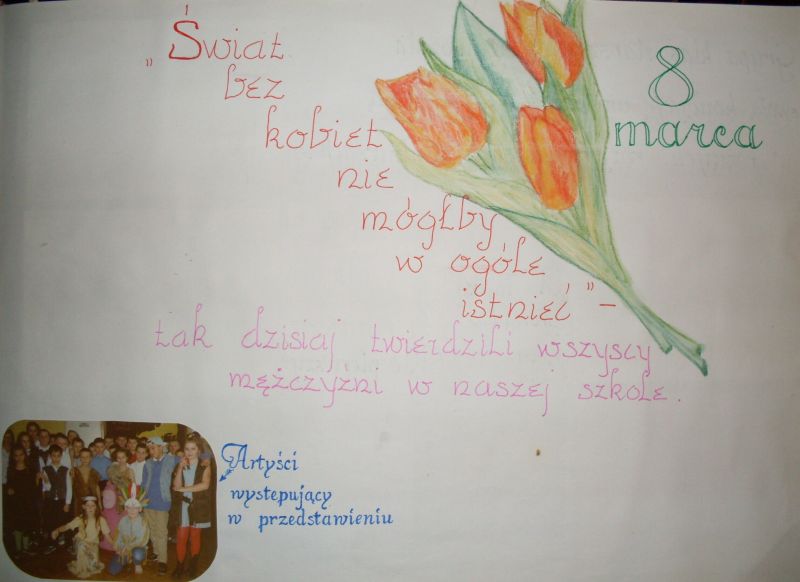 „Świat
bez
kobiet
nie
mógłby
w ogóle
istnieć” –
8
marca
tak dzisiaj twierdzili wszyscy
mężczyzni w naszej szkole.
Artyści
występujący
w przedstawieniu